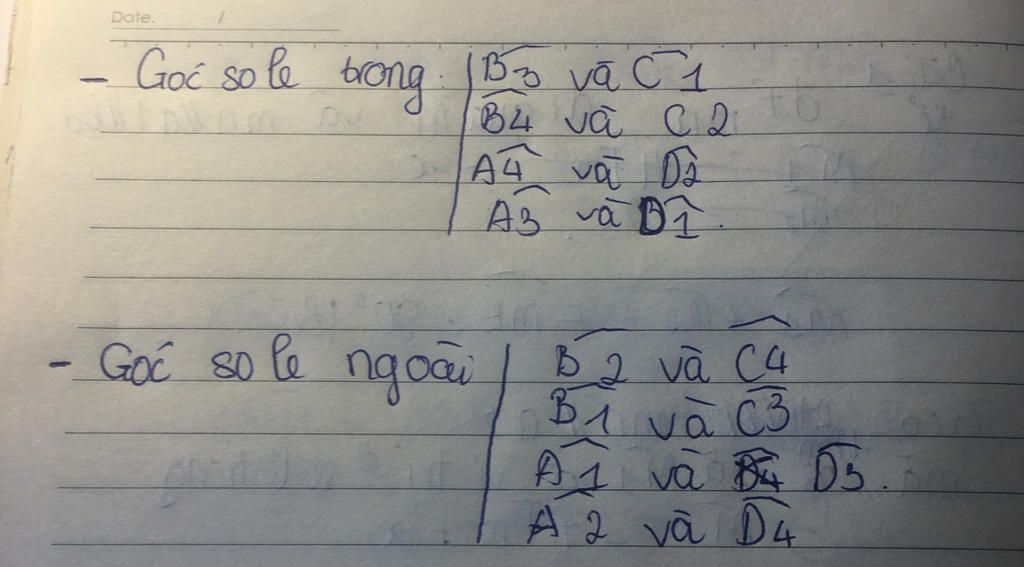 Date. /
- Góc so le trong: B3 và C1
B4 và C2
A4 và D2
A3 và D1.
- Góc so le ngoài B2 và C4
B1 và C3
A1 và D3.
A2 và D4